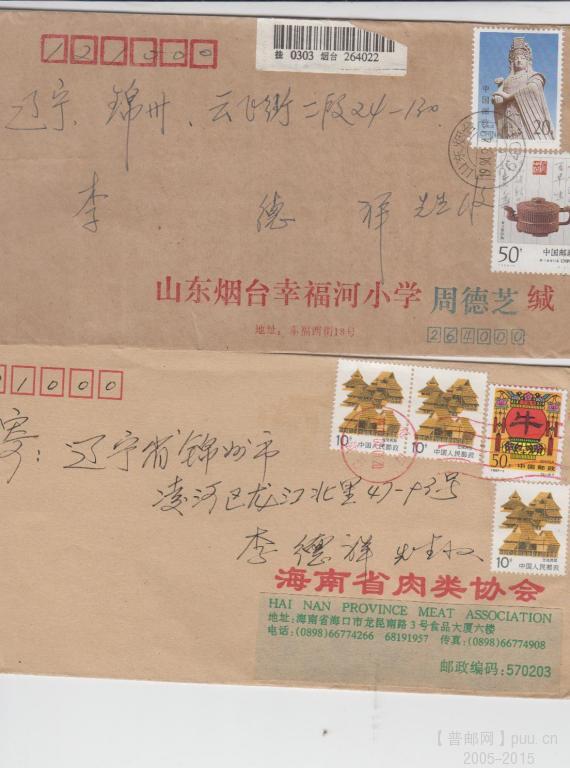 121000
挂 0303 烟台 264022
20分
中国邮政
辽宁、锦州、云飞街二段24-130
李德祥先生收
50分
中国邮政
山东烟台幸福河小学 周德芝 缄
地址：幸福西街18号
264000
21000
寄：辽宁省锦州市
凌河区龙江北里47-93号
李德祥先生收
10分
中国人民邮政
10分
中国人民邮政
牛
50分
中国邮政
10分
中国人民邮政
海南省肉类协会
HAI NAN PROVINCE MEAT ASSOCIATION
地址:海南省海口市龙昆南路3号食品大厦六楼
电话:(0898)66774266 68191957 传真:(0898)66774908
邮政编码:570203
【普邮网】puu.cn
2005-2015